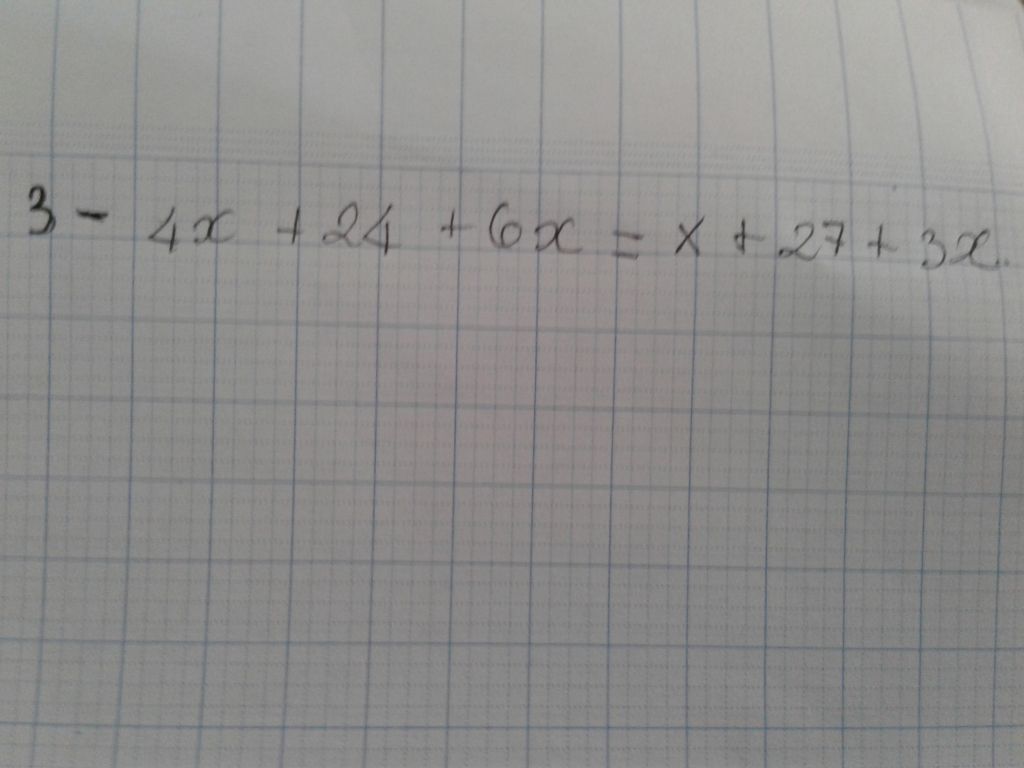 3 - 4x + 24 + 6x = x + 27 + 3x.